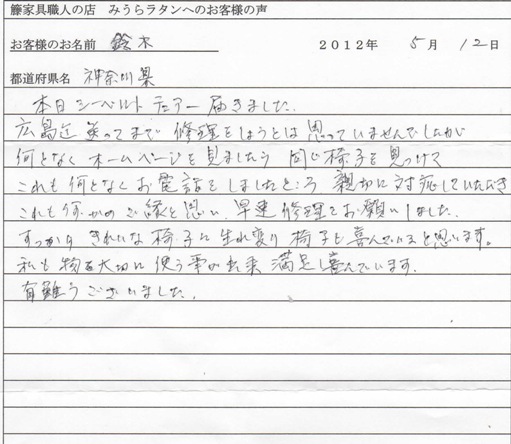 籐家具職人の店 みうらラタンへのお客様の声
お客様のお名前 鈴木 2012年 5月 12日
都道府県名 神奈川県
本日シーベルトチェアー届きました.
広島迄 送ってまで 修理をしようとは 思っていませんでしたが
何となく ホームページを見ましたら 同じ椅子を見つけて
これも何となくお電話をしましたところ 親切に対応していただき
これも何かのご縁と思い、早速修理をお願いしました.
すっかり きれいな椅子に生れ変り 椅子も喜んでいると思います。
私も物を大切に使う事が出来 満足し喜んでいます.
有難うございました.